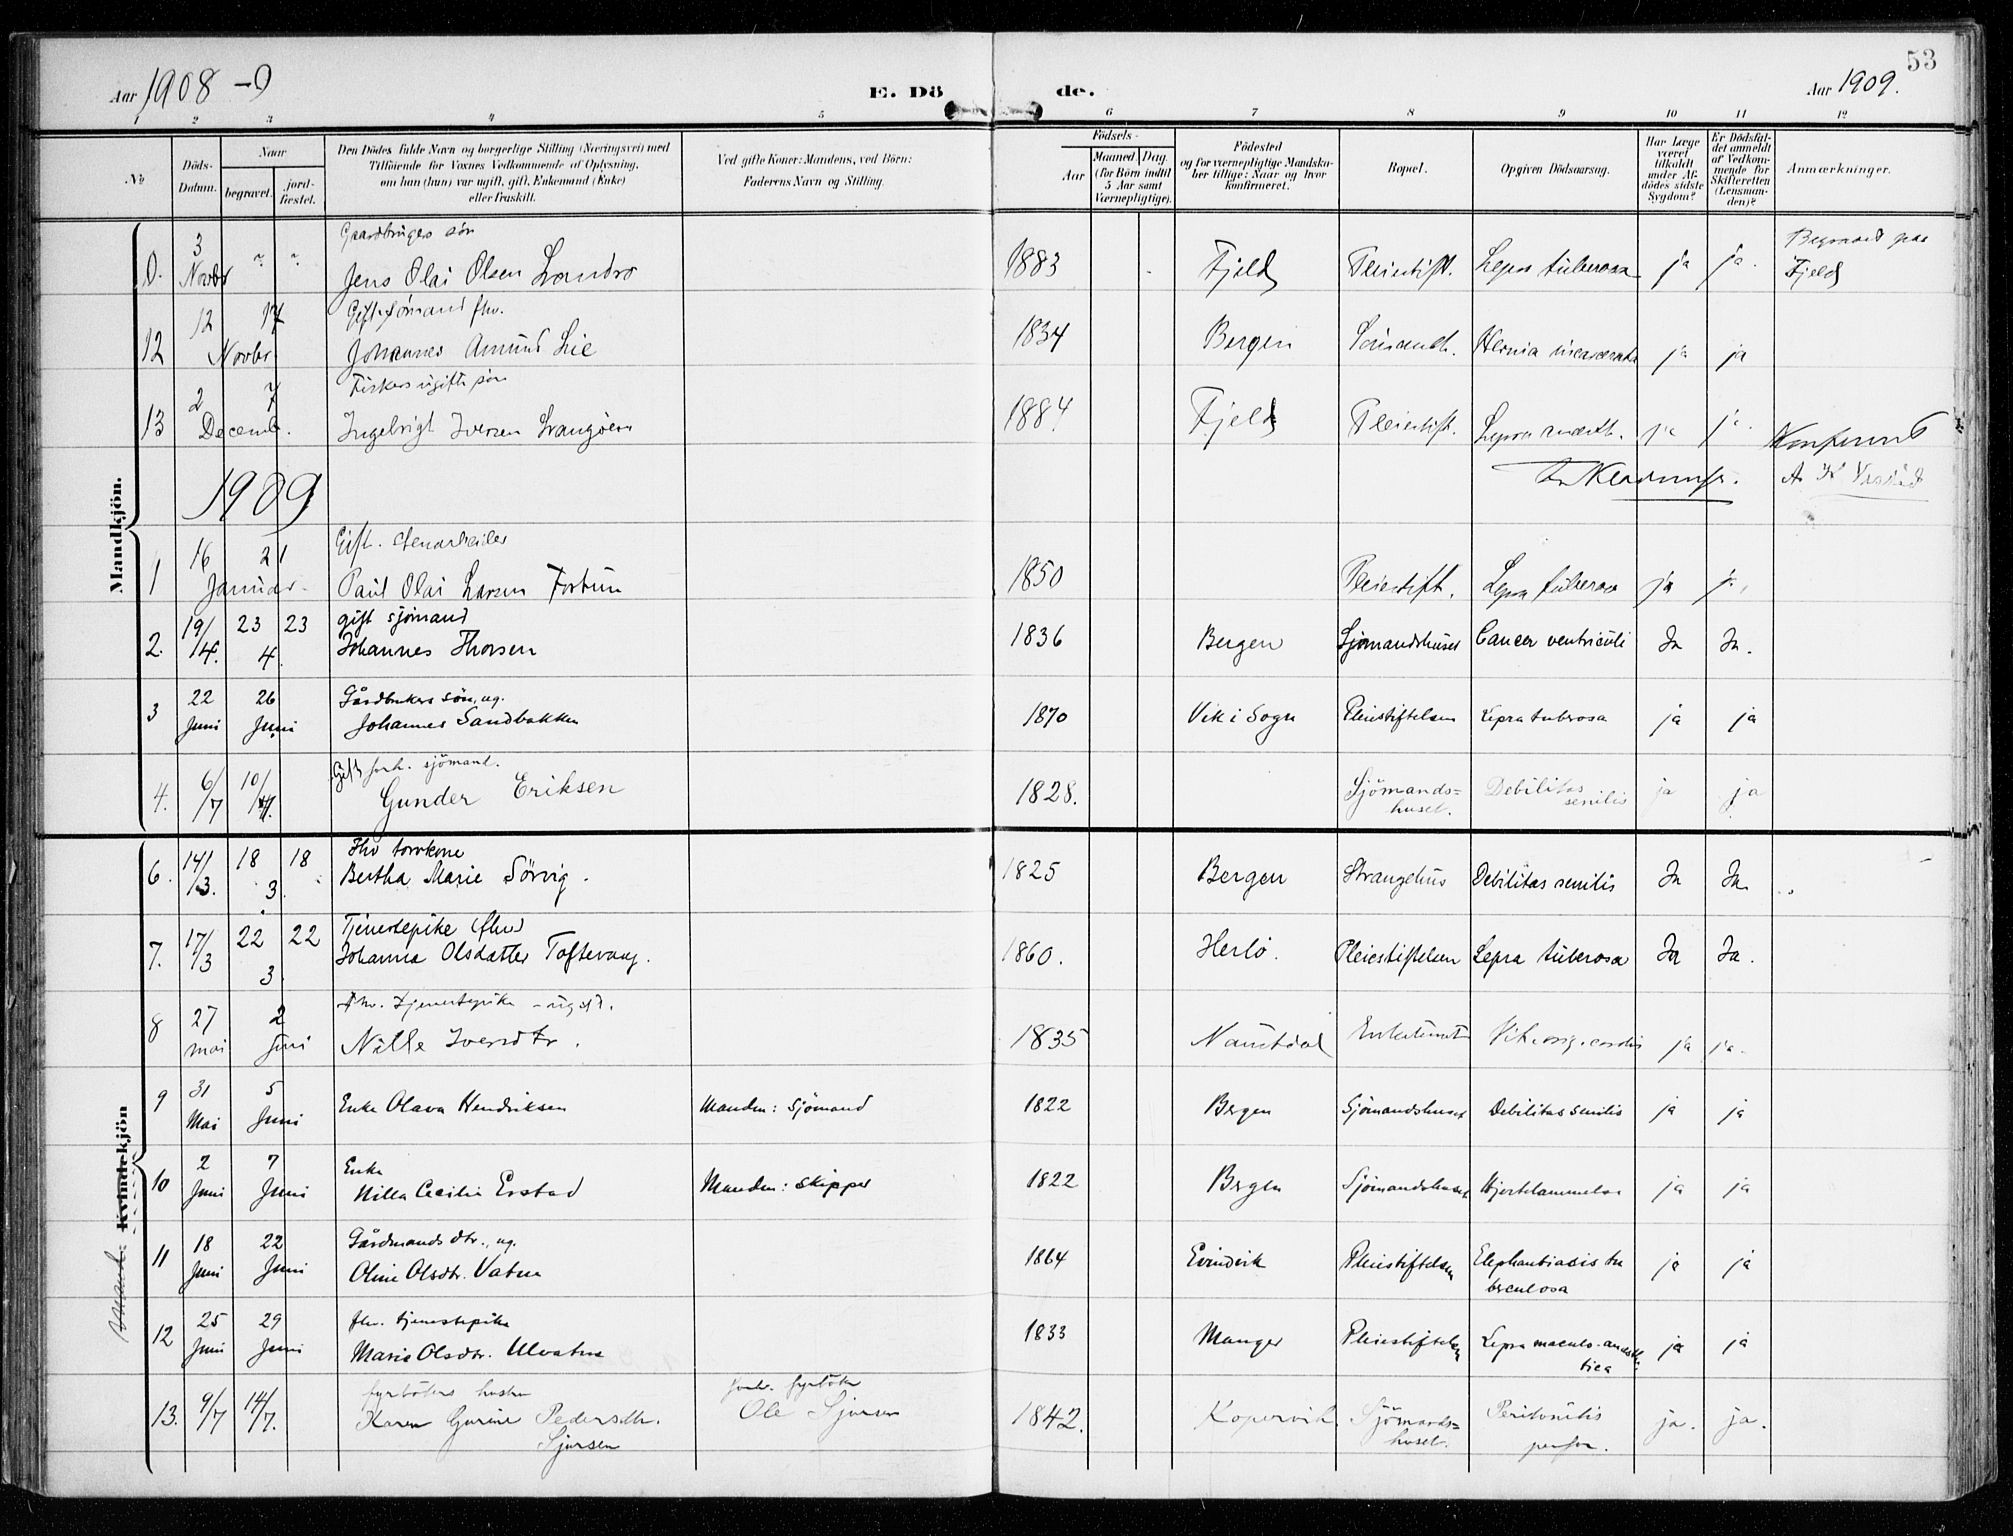 53
Aar 1908-9
E. Dö
de.
Aar 1909.
1 2 3 4 5 6 7 8 9 10 11 12
No
Döds-Datum.
Naar
begravet.
jord-fæstet.
Den Dödes fulde Navn og borgerlige Stilling (Næringsvei) med
Tilföiende for Voxnes Vedkommende af Oplysning,
om han (hun) var ugift, gift, Enkemand (Enke)
eller fraskilt.
Ved gifte Koner: Mandens, ved Börn:
Faderens Navn og Stilling.
Födsels-
Aar
Maaned. Dag.
(for Börn indtil
5 Aar samt
Værnepligtige).
Födested
og for værnepligtige Mandska-
ber tillige: Naar og hvor
konfirmeret.
Bopæl.
Opgiven Dödsaarsag.
Har Læge
været
tilkaldt
under Af-
dödes sidste
Sygdom?
Er Dödsfal-
det anmeldt
af Vedkom-
mende for
Skifteretten
(Lensman-
den)?
Anmærkninger.
Mandkjön.
Gaardbrugers sön
3 Novbr Jens Olai Olsen Landro 1883 Fjeld Pleiestift. Lepra tuberosa ja ja. Begravet paa Fjeld
Gift sömand fhv.
12 12 17 Novbr. Johannes Amund Lie 1834 Bergen Hernia incarcerata ja ja
Fiskers ugifte sön
13 2 7 Decemb. Ingebrigt Iversen 1884 Fjeld Pleiestift. Lepra anæsth. ja ja. Konfereret
1909
Gift. Stenarbeider
1 16 21 Januar Paul Olai Larsen Fortun 1850 Pleiestift. Lepra tuberosa ja ja.
gift sjömand
2. 19/4. 23 23 4. Johannes Thorsen 1836 Bergen Sjömandshuset Cancer ventriculi Ja Ja.
Gårdbrukers sön, ug.
3 22 Juni 26 Juni Johannes Sandbakken 1870 Vik i Sogn Pleiestiftelsen Lepra tuberosa ja ja
Gift forh. sjömand.
4. 6/7 10/7. Gunder Eriksen 1828. Sjömands=huset. Debilitas senilis ja ja
Kvindekjön
Fhv torvkone
6. 14/3. 18 18 3. Bertha Marie Sörvig. 1825 Bergen Strangehus Debilitas senilis Ja Ja
Tjenestepike (fhv)
7. 17/3 22 22 3. Johanna Olsdatter Toftevaag. 1860. Herlö. Pleiestiftelsen Lepra tuberosa Ja Ja.
fhv. tjenestepike - ugift.
8 27 mai 2 Juni Nille Iversdtr. 1835 Naustdal Vit. org. cordis ja ja.
9 31 Mai 5 Juni Enke Olava Hendriksen Manden: Sjömand 1822 Bergen Sjömandshuset Debilitas senilis ja ja
Enke
10 2 Juni 7 Juni Nilla Cecilie Erstad Manden: Skipper 1822 Bergen Sjömandshuset Hjertelammelse ja ja
Gårdmands dtr., ug.
11 18 Juni 22 Juni Oline Olsdtr. Vatne 1864 Evindvik Pleiestiftelsen Elephantiasis tu
berculosa ja ja
fhv. tjenestepike
12 25 Juni 29 Juni Marie Olsdtr. Ulvatne 1833 Manger Pleiestiftelsen Lepra maculo-anæsthe
tica ja ja
fyrböters hustru forh. fyrböter
13. 9/7 14/7. Karen Gurine Pedersdtr. Ole Sjursen 1842. Kopervik. Sjömands= Peritonitis ja. ja.
Sjursen huset. perfor.